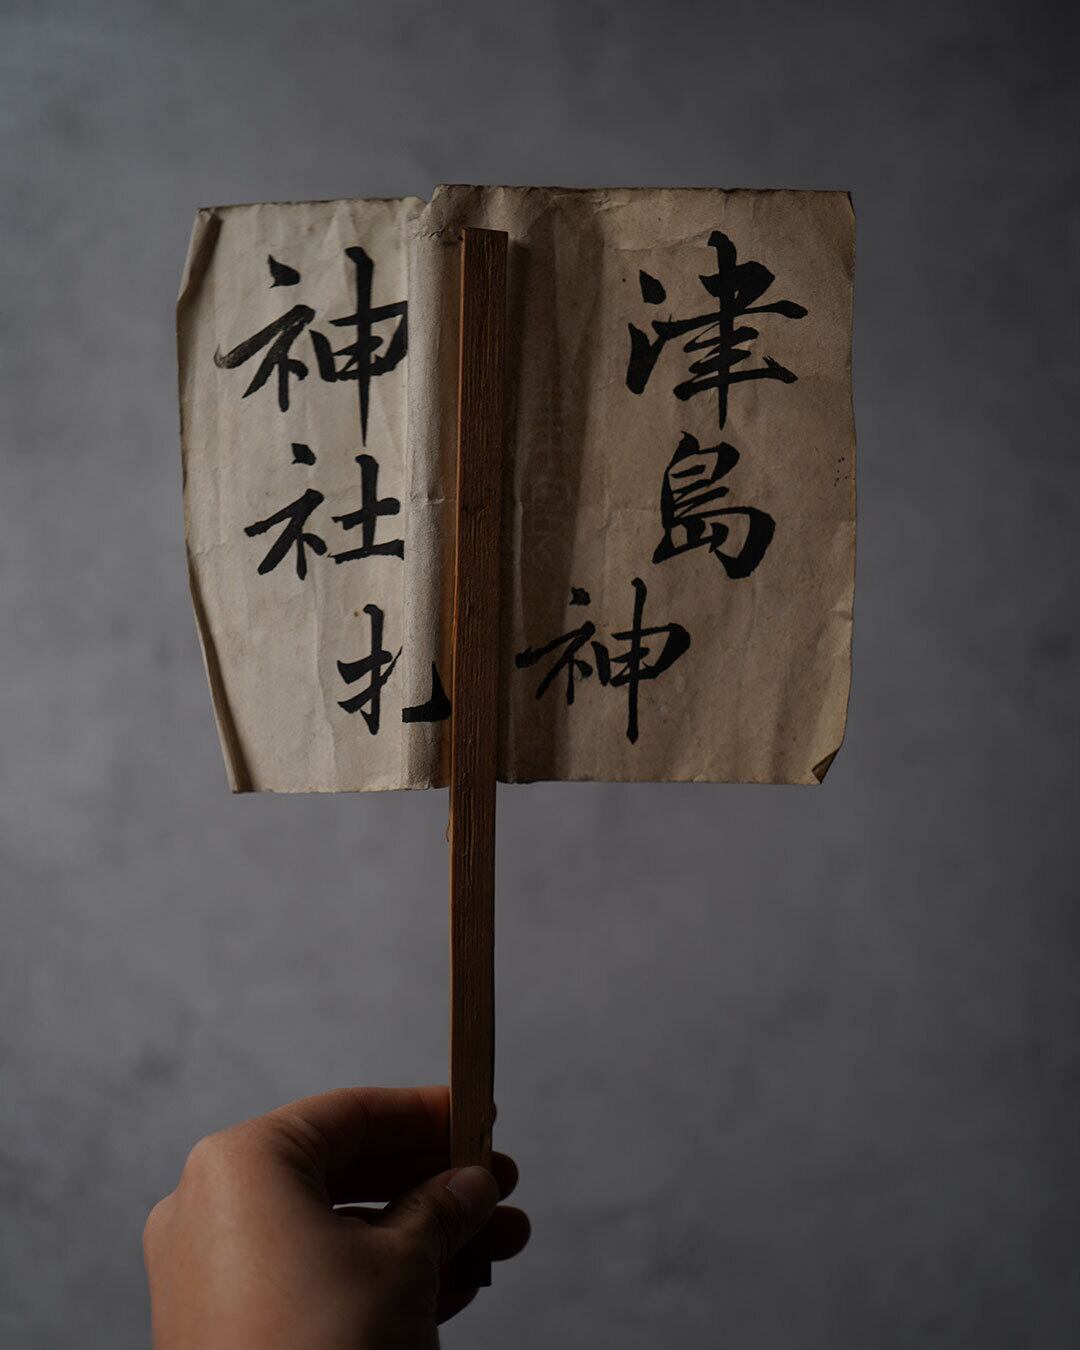 津島神
神社札